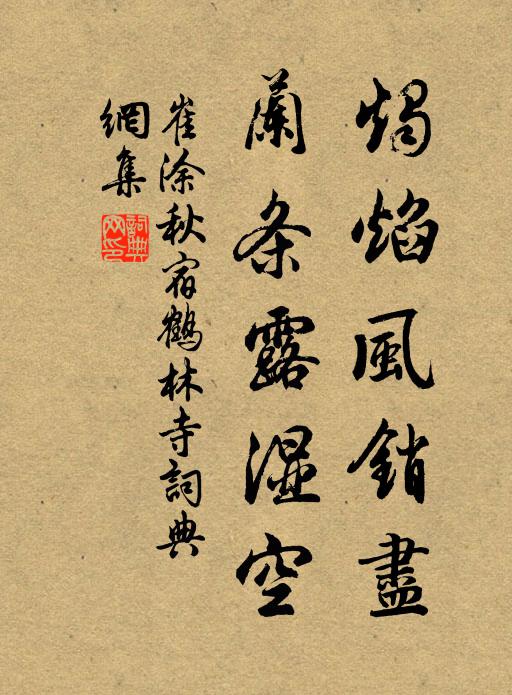 燭焰風銷盡
蘭条露湿空
崔涂秋宿鶴林寺詞典
網集
詞典
网印